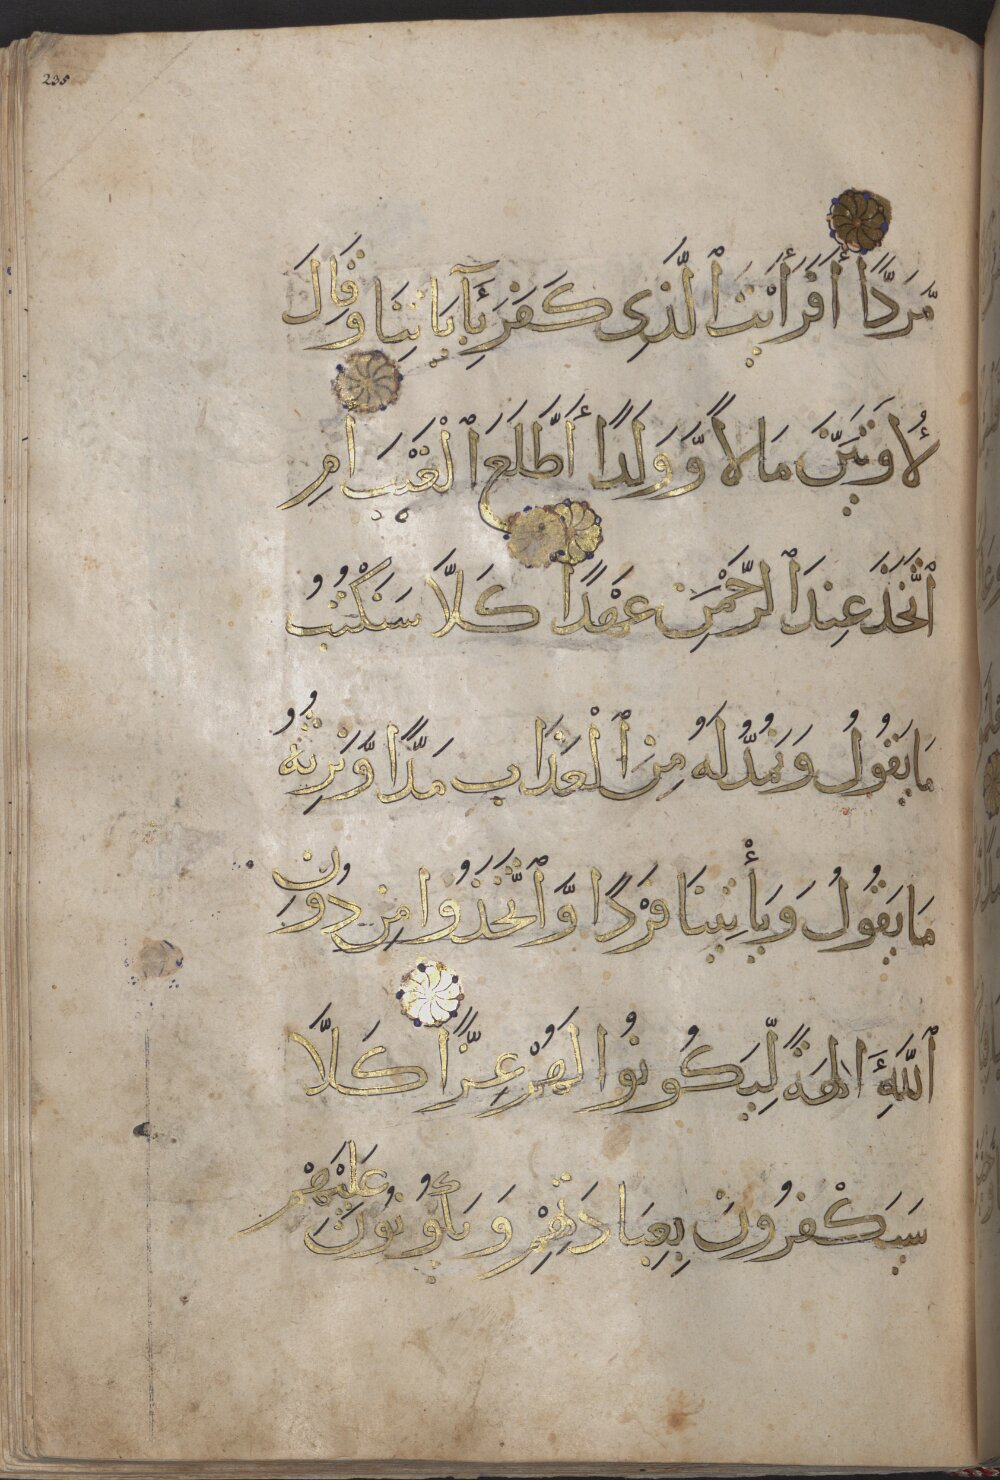 235
مَّرَدًّا أَفَرَأَيْتَ ٱلَّذِى كَفَرَ بِآيَاتِنَا وَقَالَ
لَأُوتَيَنَّ مَالاً وَّوَلَدًا أَطَّلَعَ ٱلْغَيْبَ اَمِ
ٱتَّخَذَ عِندَ ٱلرَّحْمَٰنِ عَهْدًا كَلاَّ سَنَكْتُبُ
مَا يَقُولُ وَنَمُدُّ لَهُ مِنَ ٱلْعَذَابِ مَدًّا وَّنَرِثُهُ
مَا يَقُولُ وَيَأْتِينَا فَرْدًا وَّٱتَّخَذُوا مِن دُونِ
ٱللَّهِ ءَالِهَةً لِّيَكُونُوا لَهُمْ عِزًّا كَلاَّ
سَيَكْفُرُونَ بِعِبَادَتِهِمْ وَيَكُونُونَ عَلَيْهِمْ